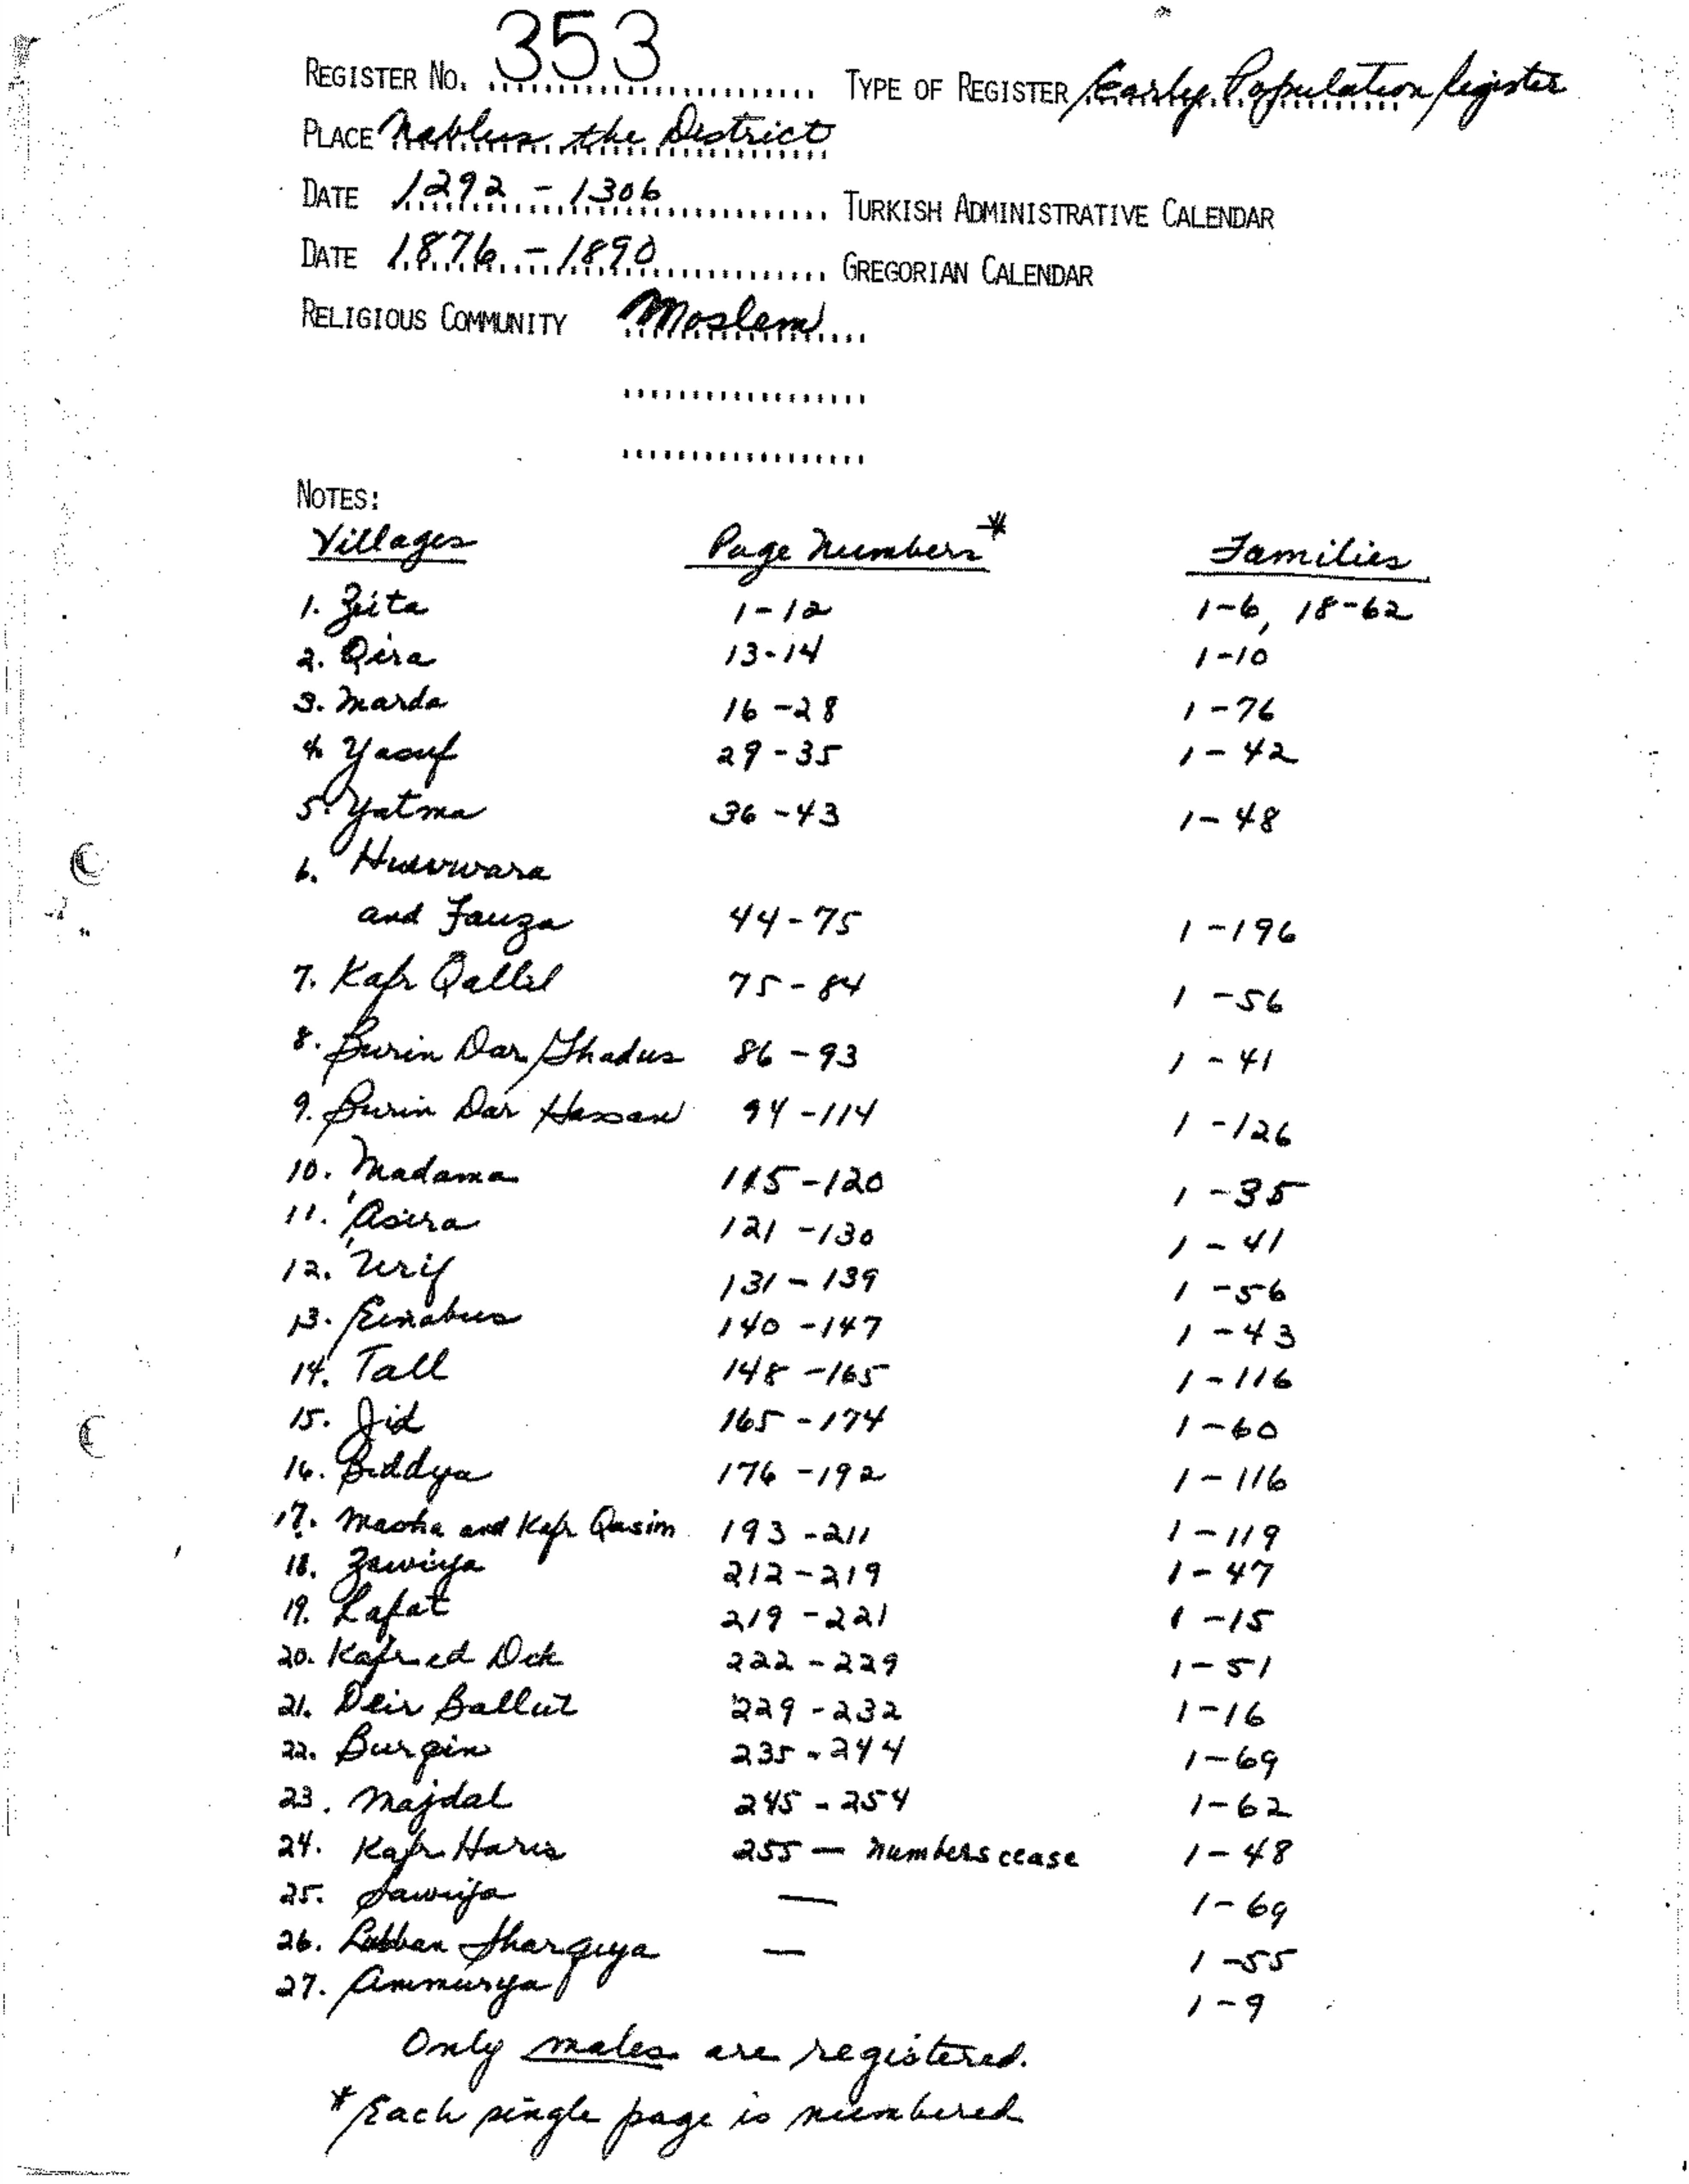 REGISTER NO. 353 TYPE OF REGISTER Early Population Register
PLACE Nablus the District
DATE 1292 - 1306 TURKISH ADMINISTRATIVE CALENDAR
DATE 1876 - 1890 GREGORIAN CALENDAR
RELIGIOUS COMMUNITY Moslem
NOTES:
Villages Page Numbers* Families
1. Zeita 1-12 1-6, 18-62
2. Qira 13-14 1-10
3. Marda 16-28 1-76
4. Yasuf 29-35 1-42
5. Yatma 36-43 1-48
6. Huwwara
and Fauza 44-75 1-196
7. Kafr Qallil 75-84 1-56
8. Burin Dar Ghadus 86-93 1-41
9. Burin Dar Hassan 94-114 1-126
10. Madama 115-120 1-35
11. 'Asira 121-130 1-41
12. 'Urif 131-139 1-56
13. Einabus 140-147 1-43
14. Tall 148-165 1-116
15. Jid 165-174 1-60
16. Biddya 176-192 1-116
17. Masha and Kafr Qasim 193-211 1-119
18. Zawiya 212-219 1-47
19. Rafat 219-221 1-15
20. Kafr ed Dik 222-229 1-51
21. Deir Ballut 229-232 1-16
22. Burqin 235-244 1-69
23. Majdal 245-254 1-62
24. Kafr Haris 255 — numbers cease 1-48
25. Sawiya — 1-69
26. Lubban Sharqiya — 1-55
27. Ammurya 1-9
Only males are registered.
* Each single page is numbered